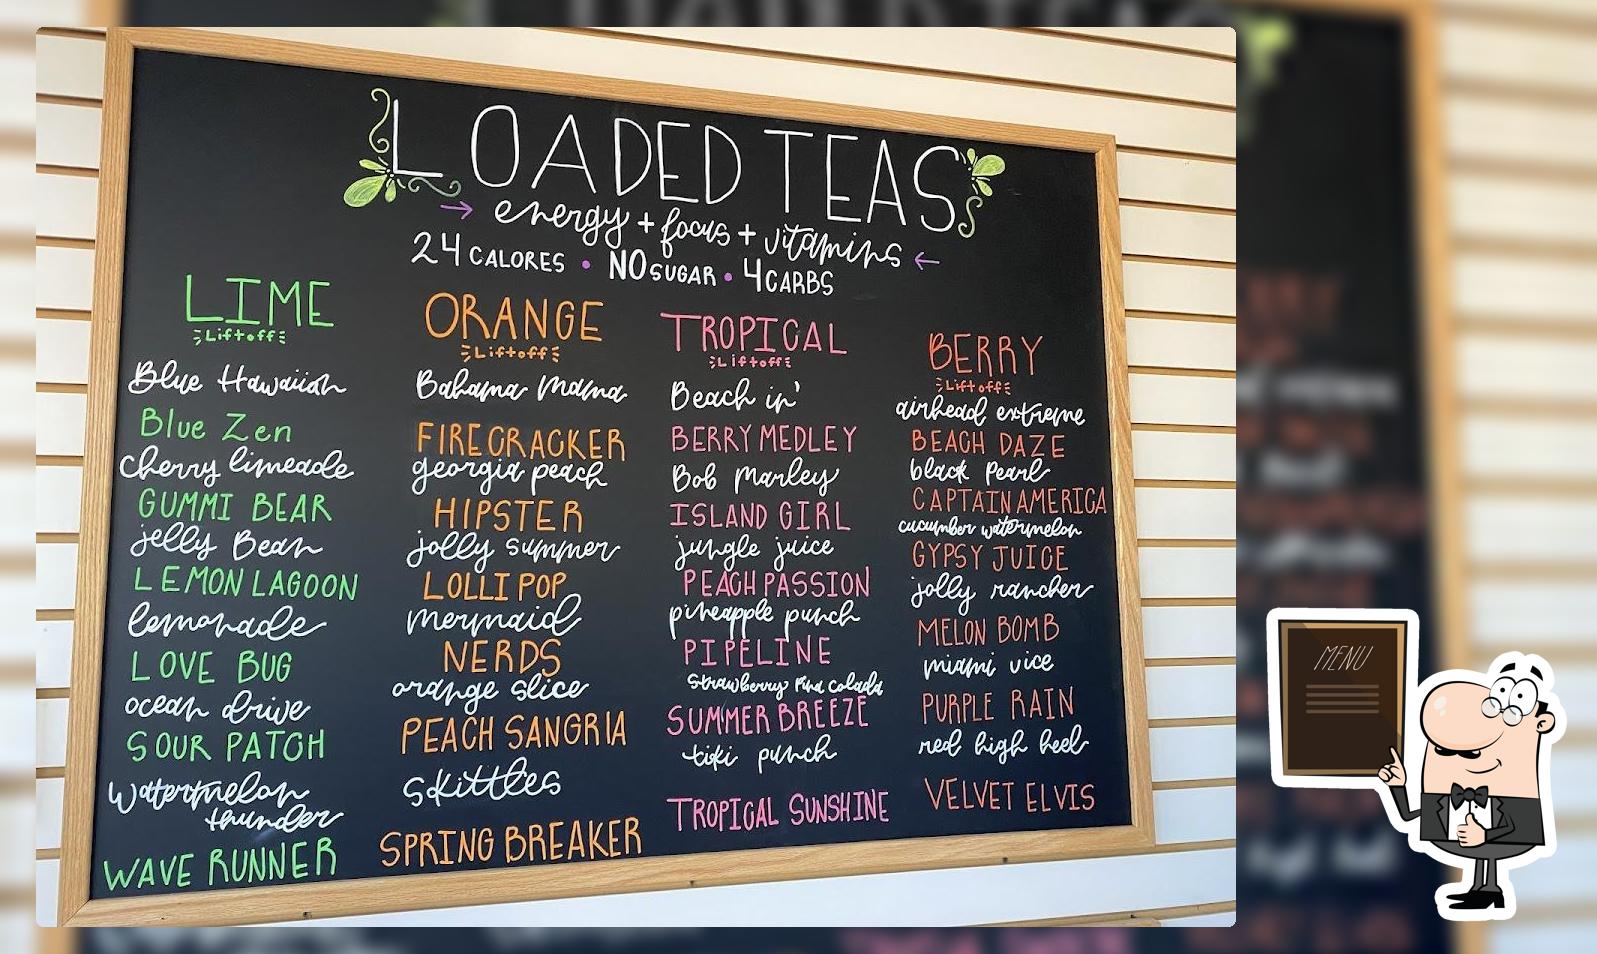 LOADED TEAS
→ energy + focus + vitamins ←
24 CALORES • NO SUGAR • 4 CARBS
LIME
Liftoff
Blue Hawaiian
Blue Zen
cherry limeade
GUMMI BEAR
jelly Bean
LEMON LAGOON
lemonade
LOVE BUG
ocean drive
SOUR PATCH
watermelon
thunder
WAVE RUNNER
ORANGE
Liftoff
Bahama Mama
FIRECRACKER
georgia peach
HIPSTER
jolly summer
LOLLIPOP
mermaid
NERDS
orange slice
PEACH SANGRIA
skittles
SPRING BREAKER
TROPICAL
Liftoff
Beach in'
BERRY MEDLEY
Bob Marley
ISLAND GIRL
jungle juice
PEACH PASSION
pineapple punch
PIPELINE
Strawberry Pina Colada
SUMMER BREEZE
tiki punch
TROPICAL SUNSHINE
BERRY
Liftoff
airhead extreme
BEACH DAZE
black Pearl
CAPTAIN AMERICA
cucumber watermelon
GYPSY JUICE
jolly rancher
MELON BOMB
miami vice
PURPLE RAIN
red high heel
VELVET ELVIS
MENU